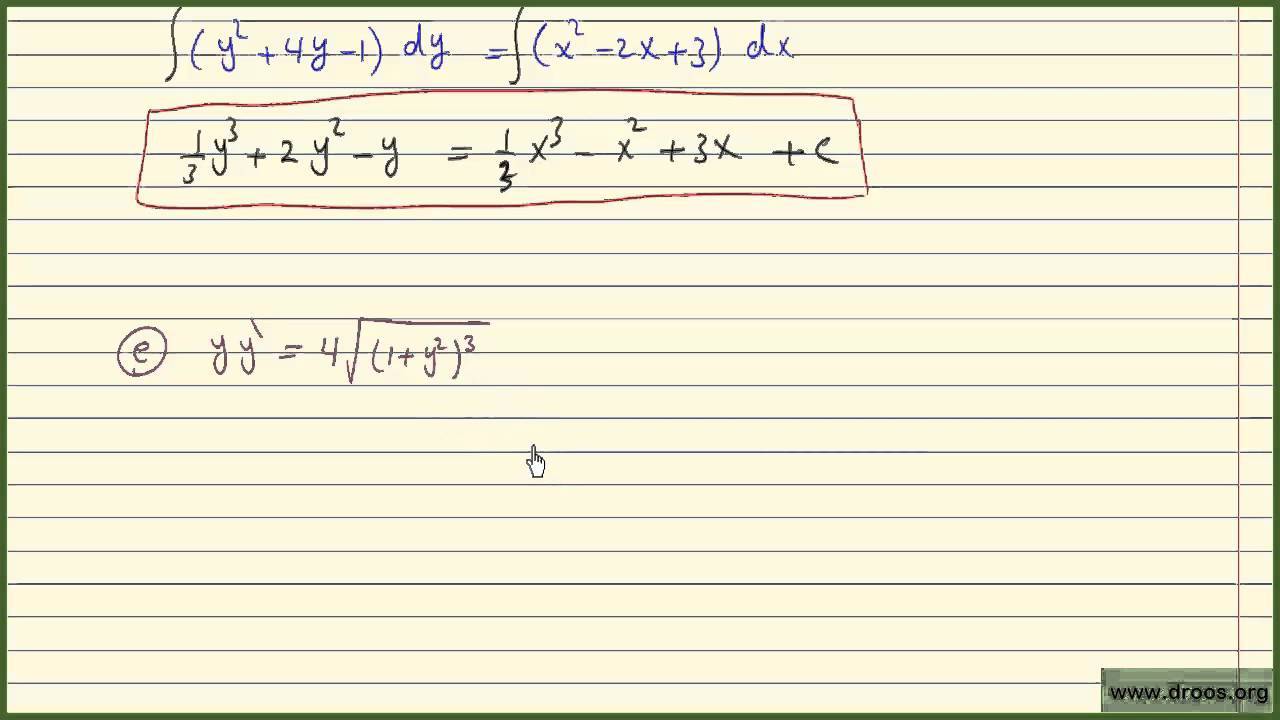 ∫(y² + 4y - 1) dy = ∫(x² - 2x + 3) dx
⅓y³ + 2y² - y = ⅓x³ - x² + 3x + c
ⓔ yy' = 4√(1+y²)³
www.droos.org